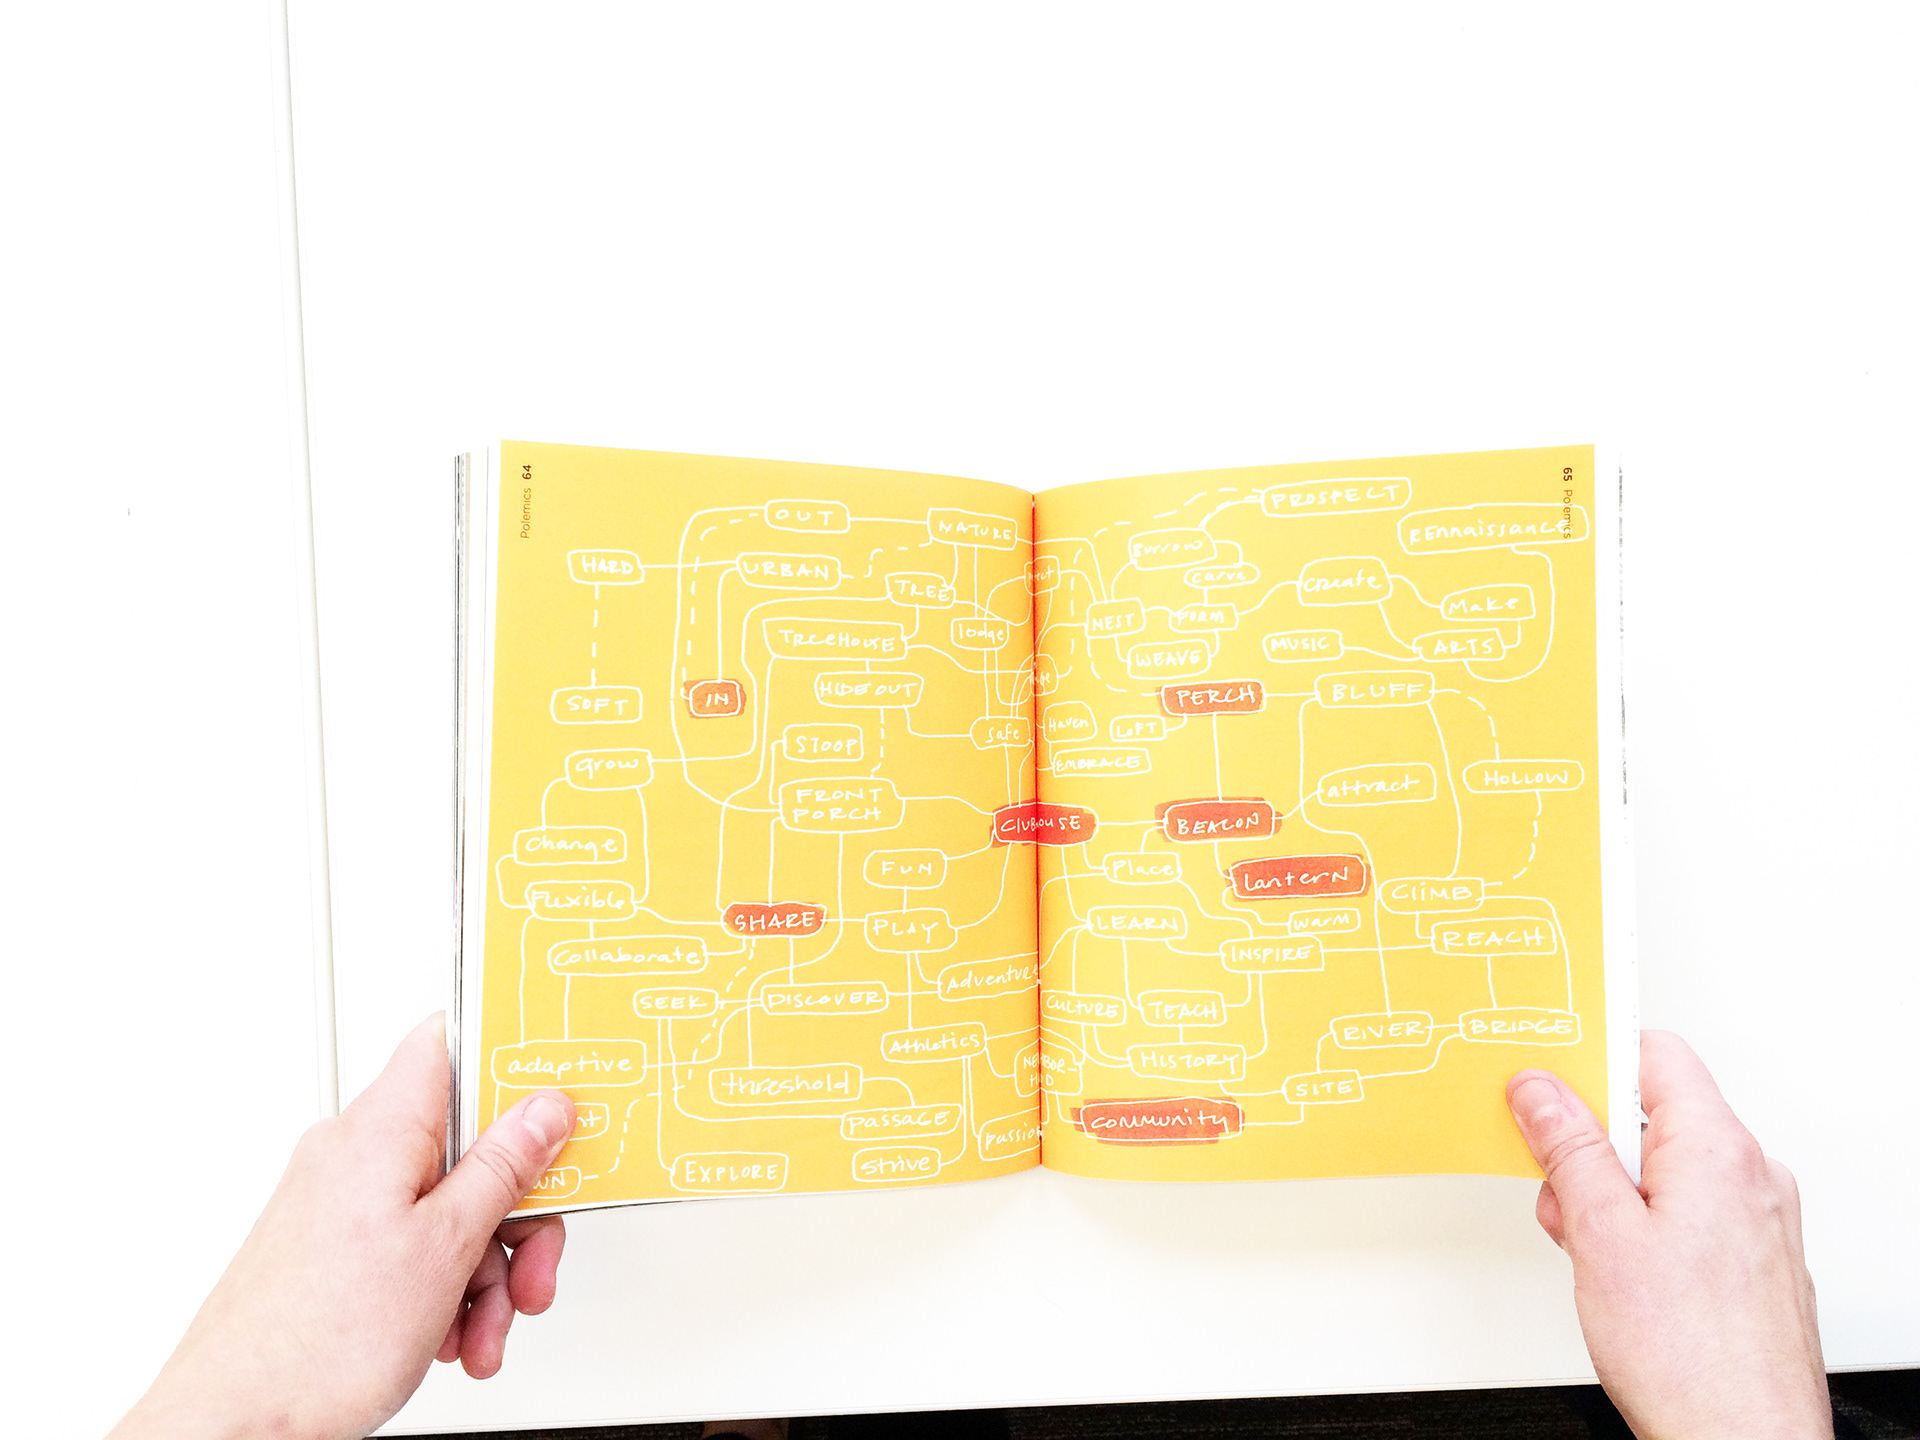 Polemics 64
OUT
NATURE
HARD
URBAN
TREE
TREEHOUSE
lodge
HIDEOUT
IN
SOFT
STOOP
Safe
grow
FRONT
PORCH
Change
FUN
Flexible
SHARE
PLAY
Collaborate
Adventure
SEEK
DISCOVER
Athletics
adaptive
threshold
PASSAGE
passion
EXPLORE
Strive
ClubHOUSE
65 Polemics
PROSPECT
RENNAISSANCE
Burrow
carve
Create
Make
NEST
FORM
MUSIC
ARTS
WEAVE
PERCH
BLUFF
LOFT
Haven
EMBRACE
HOLLOW
attract
BEACON
Place
lanterN
CLIMB
LEARN
warm
REACH
INSPIRE
CULTURE
TEACH
RIVER
BRIDGE
HISTORY
SITE
community